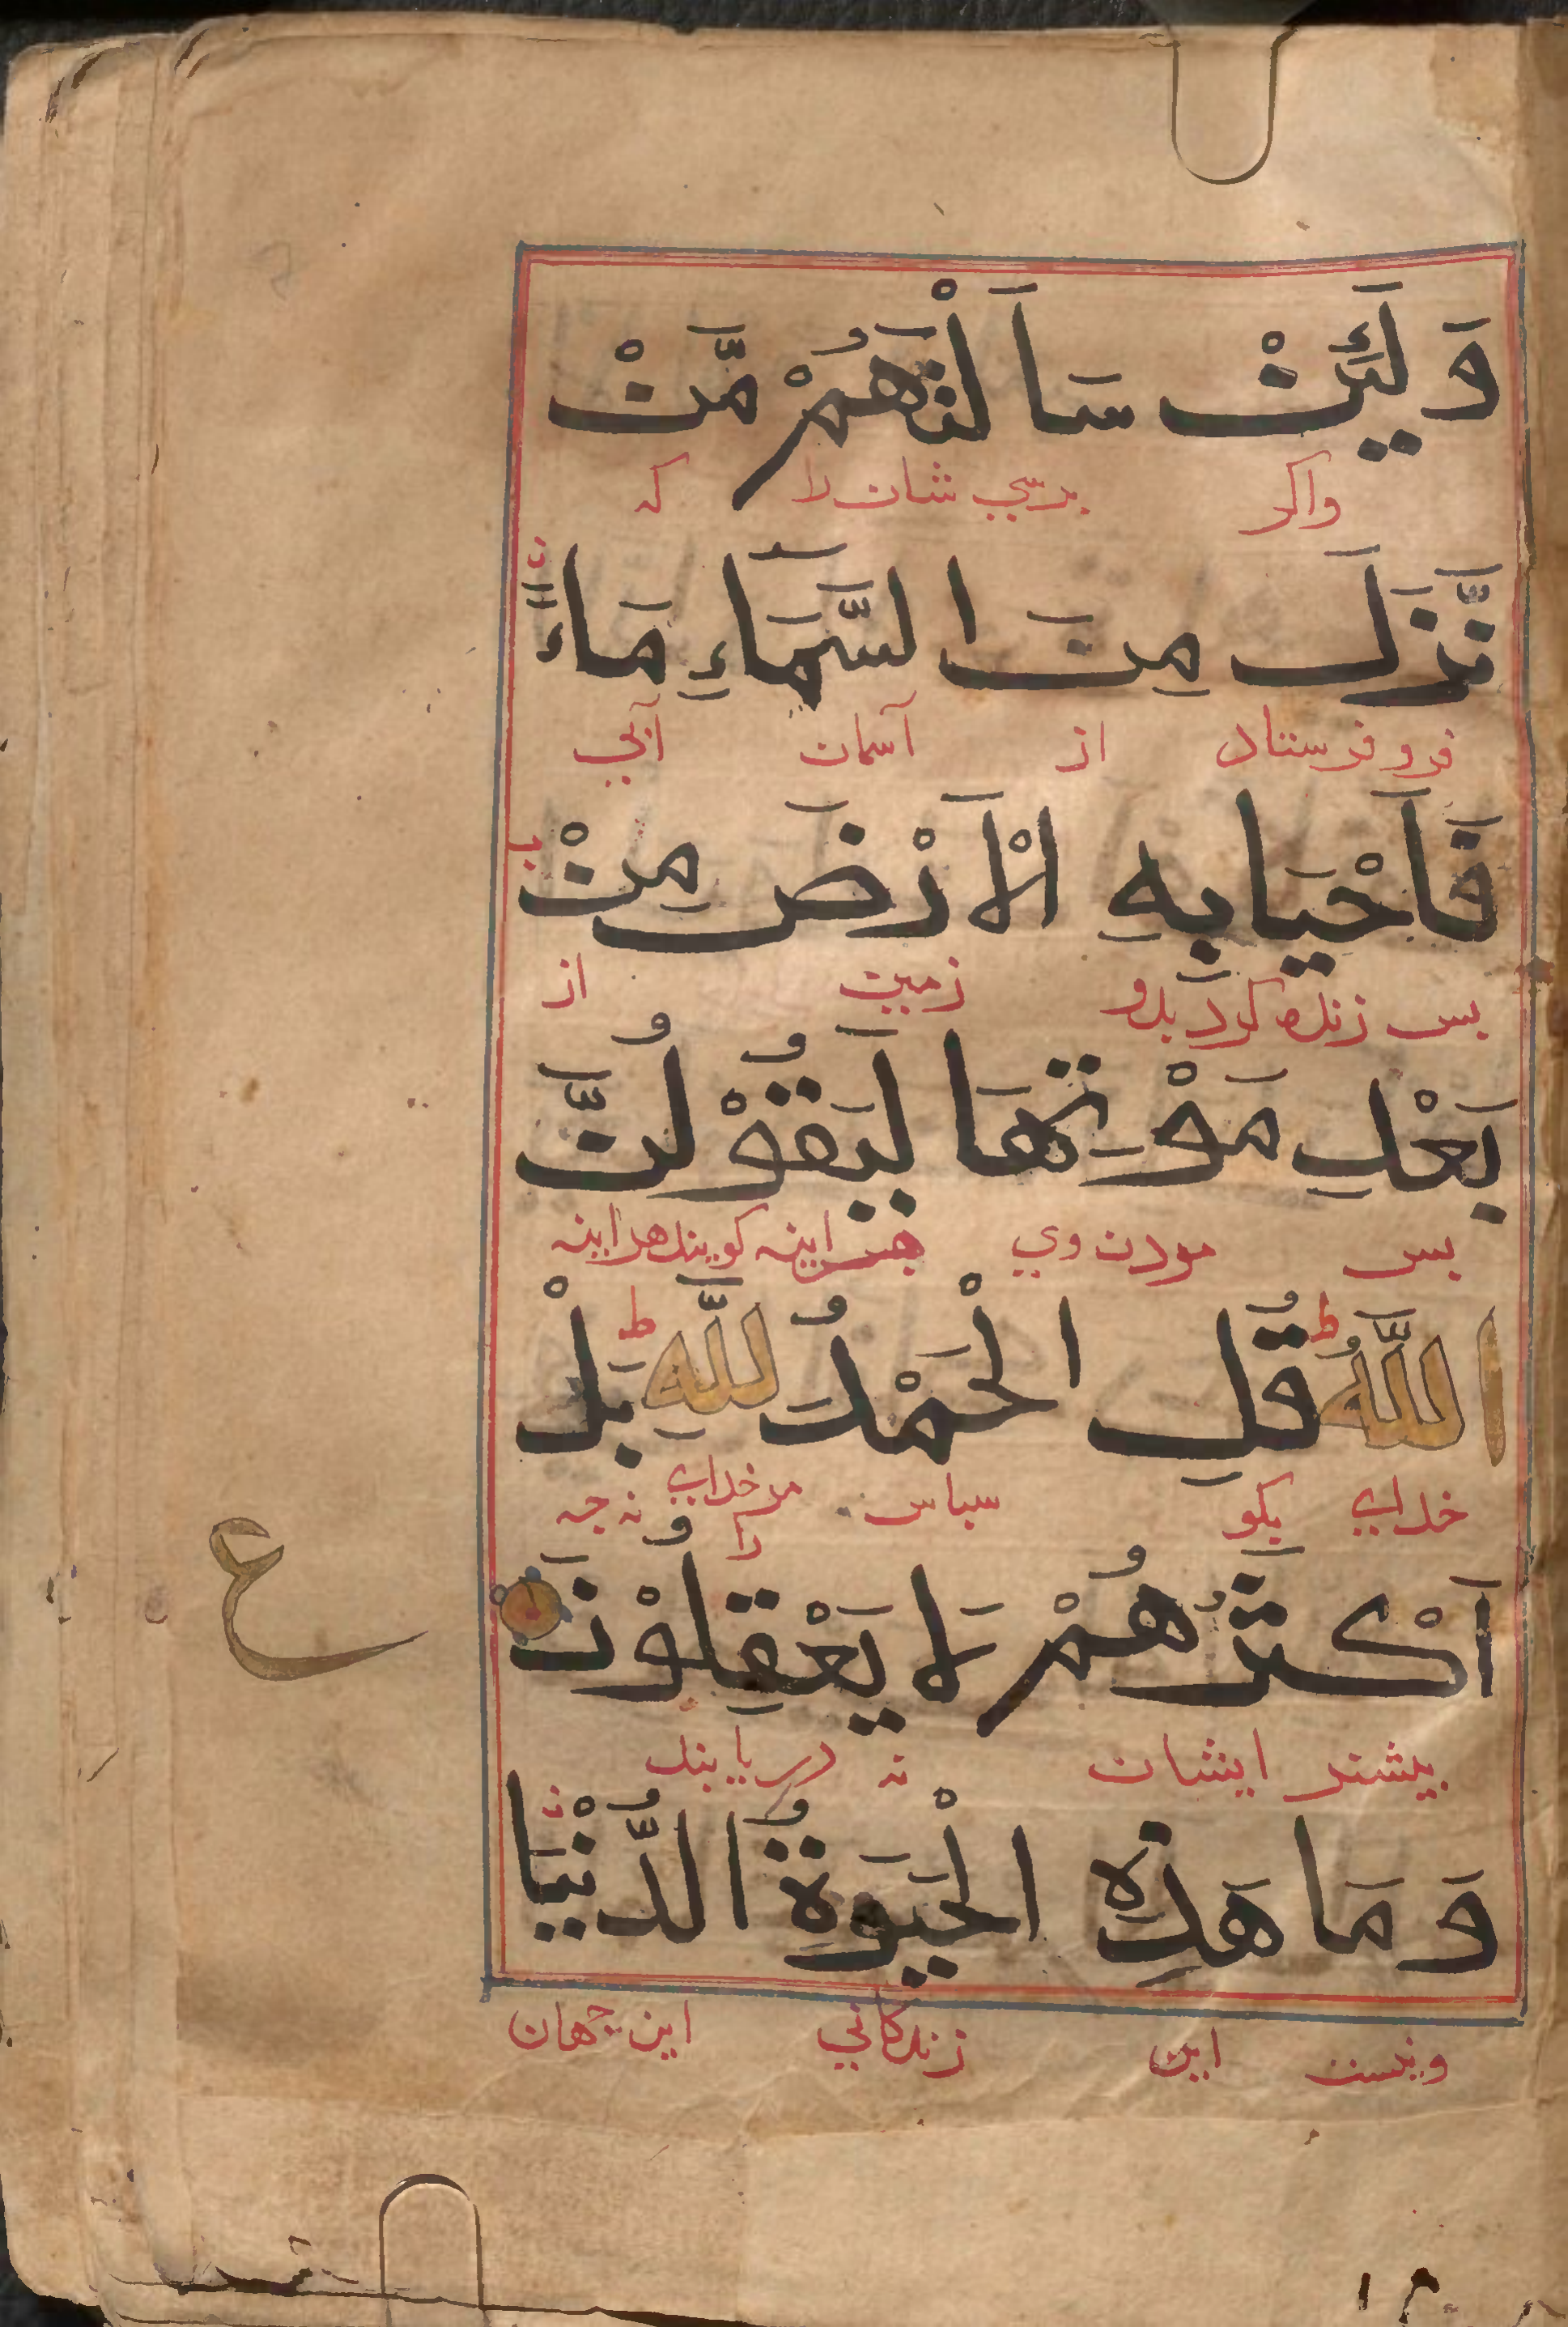 وَ لَئِنْ سَاَلْتَهُمْ مَّنْ
واكر برسي شان را كه
نَّزَّلَ مِنَ السَّمَآءِ مَاءً
فرو فرستاد از آسمان آبي
فَاَحْيَا بِهِ الْاَرْضَ مِنْ
بس زنده كرد بدو زمين از
بَعْدِ مَوْتِهَا لَيَقُوْلُنَّ
بس مردن وي هراينه كويند هراينه
اللّٰهُ ط قُلِ الْحَمْدُ لِلّٰهِ ط بَلْ
خداي بكو سباس مرخداي را نه جه
اَكْثَرُهُمْ لَا يَعْقِلُوْنَ
ع
بيشتر ايشان نه دريابند
وَ مَا هَذِهِ الْحَيٰوةُ الدُّنْيَا
ونيست اين زندكاني اين جهان